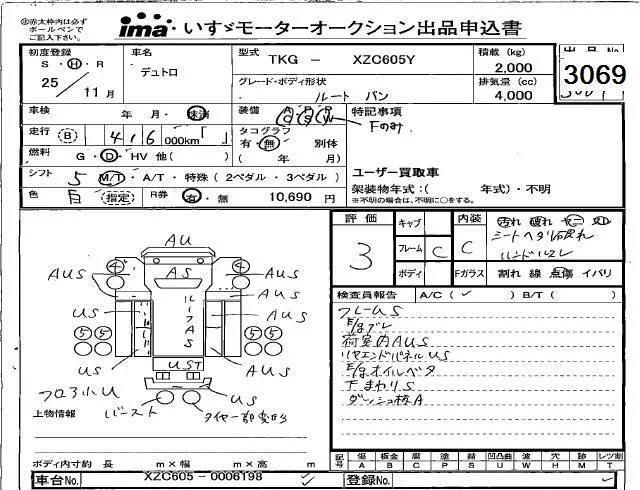 ㊟赤太枠内は必ず
ボールペンで
ご記入下さい。
ima いすゞモーターオークション出品申込書
初度登録
S・H・R
25 / 11月
車名
デュトロ
型式
TKG - XZC605Y
グレード・ボディ形状
ルートバン
積載 (kg)
2,000
排気量 (cc)
4,000
出品No.
3069
車検 年 月・抹消
装備 A/C P/S P/W
特記事項
Fのみ
走行 B 416 000km「 」
タコグラフ
有・無 別体
( 年 月)
燃料 G・D・HV 他( )
ユーザー買取車
架装物年式:( 年式)・不明
※不明の場合は、不明に○をする。
シフト 5 M/T・A/T・特殊(2ペダル・3ペダル)
色 白 (指定) R券 有・無 10,690 円
評価
3
キャブ
フレーム C
ボディ
内装
C
Fガラス
汚れ 破れ
シートヘタリ破れ
ハンドルスレ
割れ 線 点傷 イバリ
検査員報告 A/C(✓) B/T( )
フレームS
荷室内AUS
リヤエンドパネルUS
E/gオイルベタ
下まわりS
ダッシュ板A
AU
4
AS
4
AUS
AUS
AUS
AUS
US
ルーフAS
5 5
5 5
US
AUS
UST
AUS
フロア小U
US
バースト
タイヤ一部変形
上物情報
ボディ内寸約 長 m×幅 m×高 m
記号
傷 A
板金 B
腐 C
塗 P
錆 S
凹凸曲 U
波 W
穴 H
跡 M
レンズ割 T
車台No. XZC605-0006198
登録No.